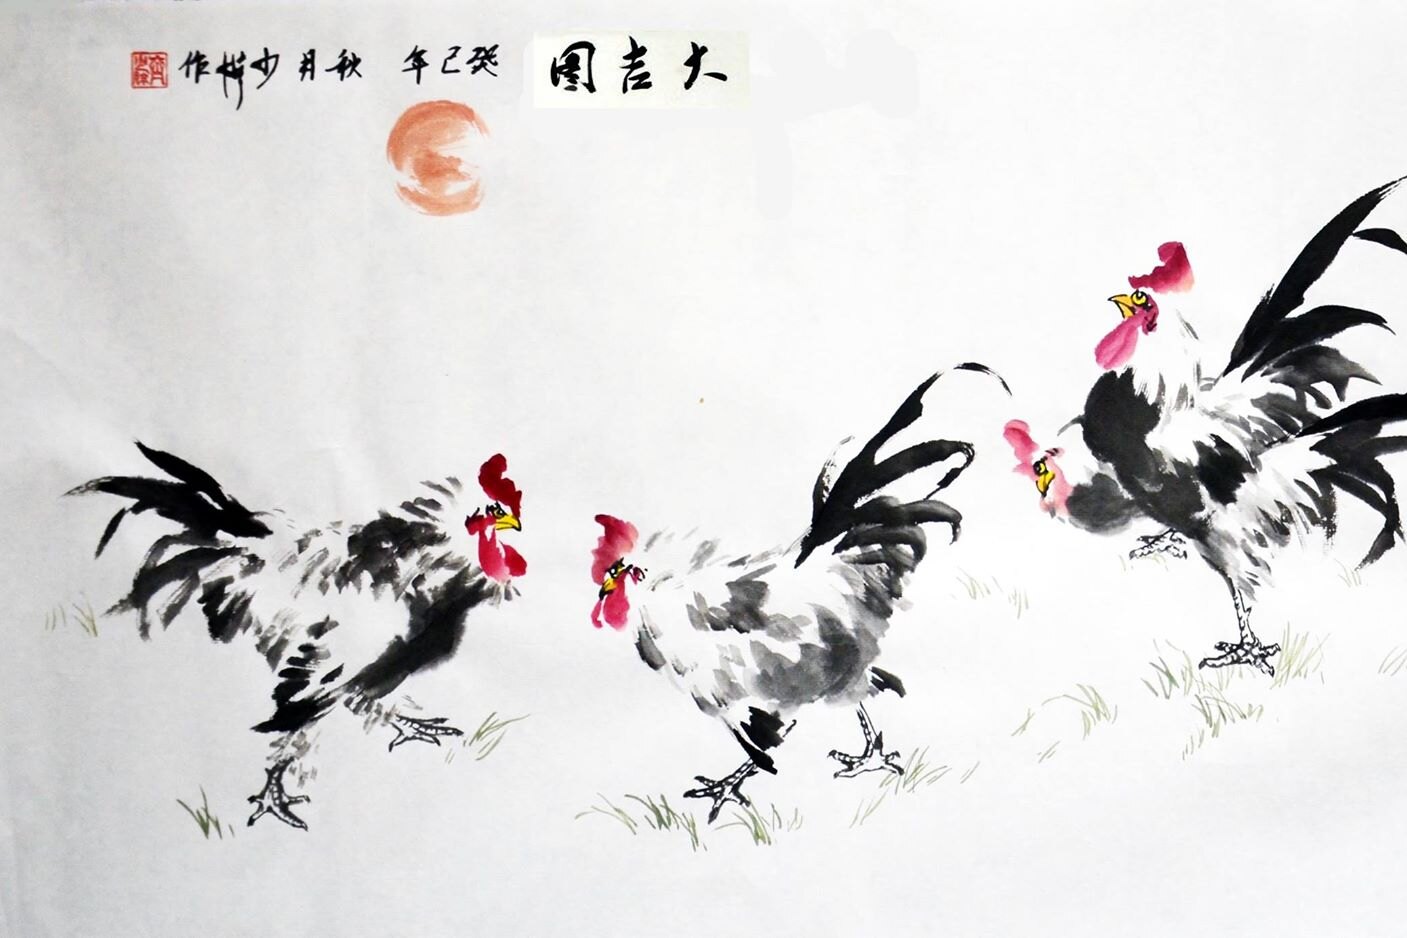 大吉图
癸巳年 秋月 少梅作